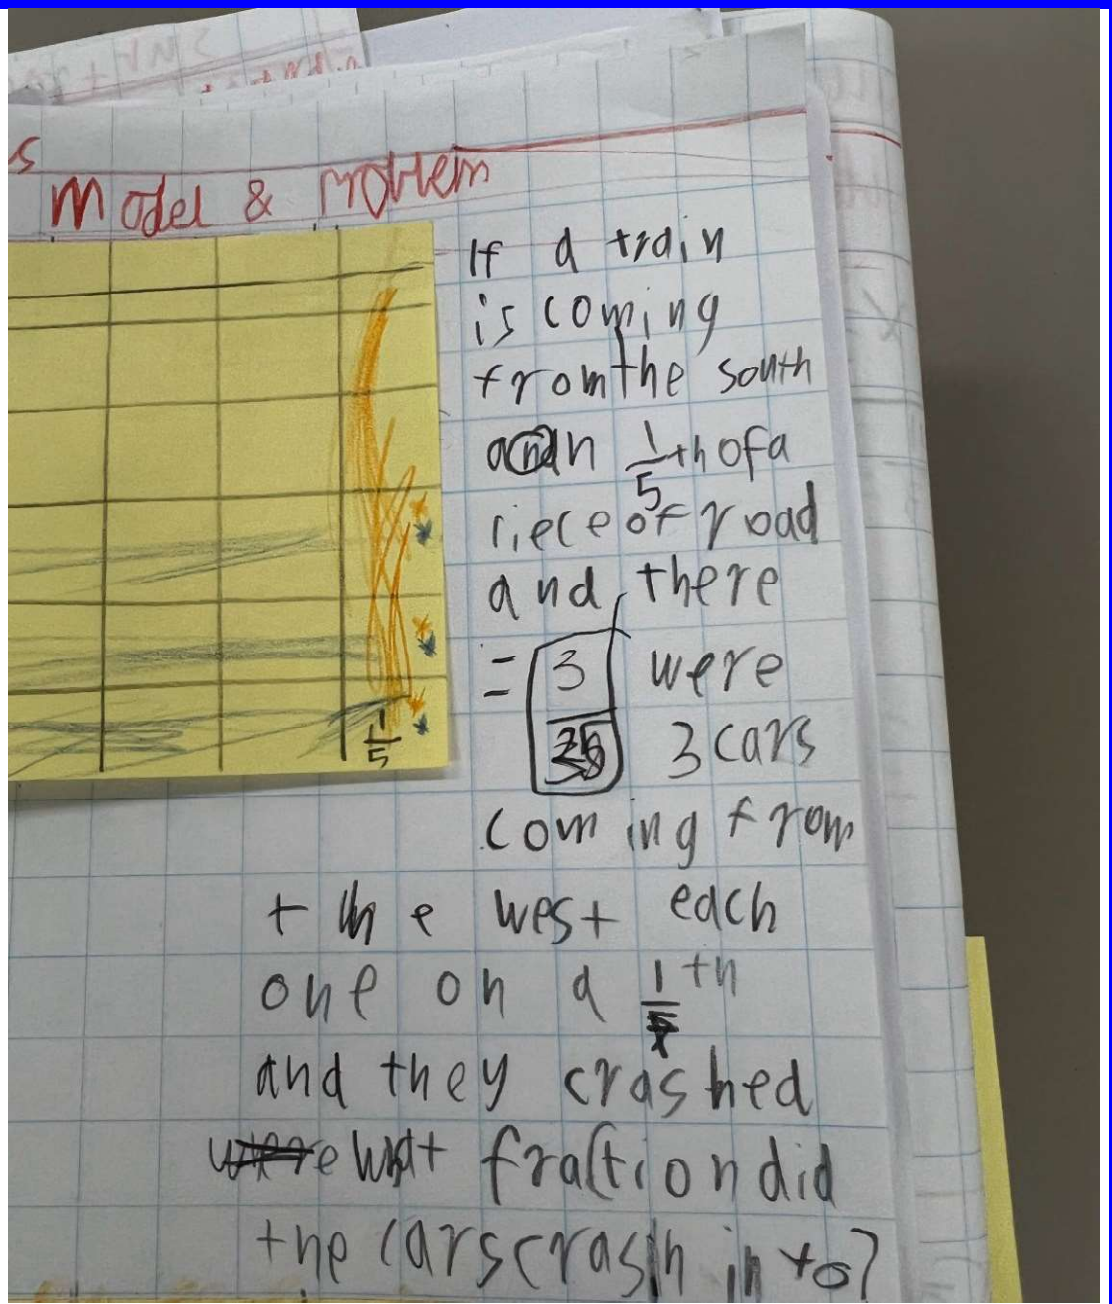 s
Model & Problem
If a train
is coming
from the south
an 1/5 th of a
piece of road
and there
= 3/35 were
3 cars
coming from
the west each
one on a 1/7 th
and they crashed
wat fraction did
the cars crash in to?
1/5